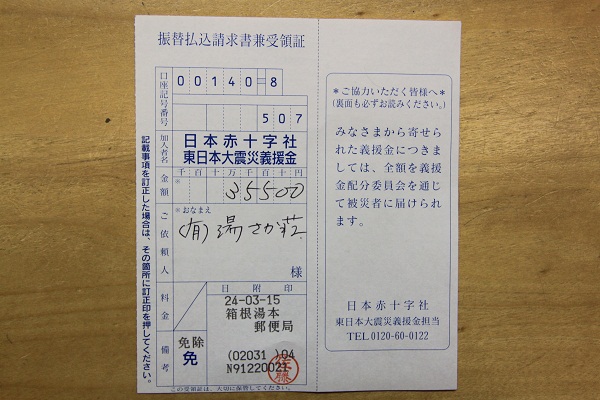 振替払込請求書兼受領証
口座記号番号
00140=8
507
加入者名
日本赤十字社
東日本大震災義援金
金額
千百十万千百十円
※
35500
※おなまえ
ご依頼人
(有)湯さか荘
様
料金
日附印
24-03-15
箱根湯本
郵便局
備考
免除
免
(02031 )04
N91220021
佐藤
この受領証は、大切に保管してください。
記載事項を訂正した場合は、その箇所に訂正印を押してください。
*ご協力いただく皆様へ*
(裏面も必ずお読みください。)
みなさまから寄せら
れた義援金につきま
しては、全額を義援
金配分委員会を通じ
て被災者に届けられ
ます。
日本赤十字社
東日本大震災義援金担当
TEL 0120-60-0122